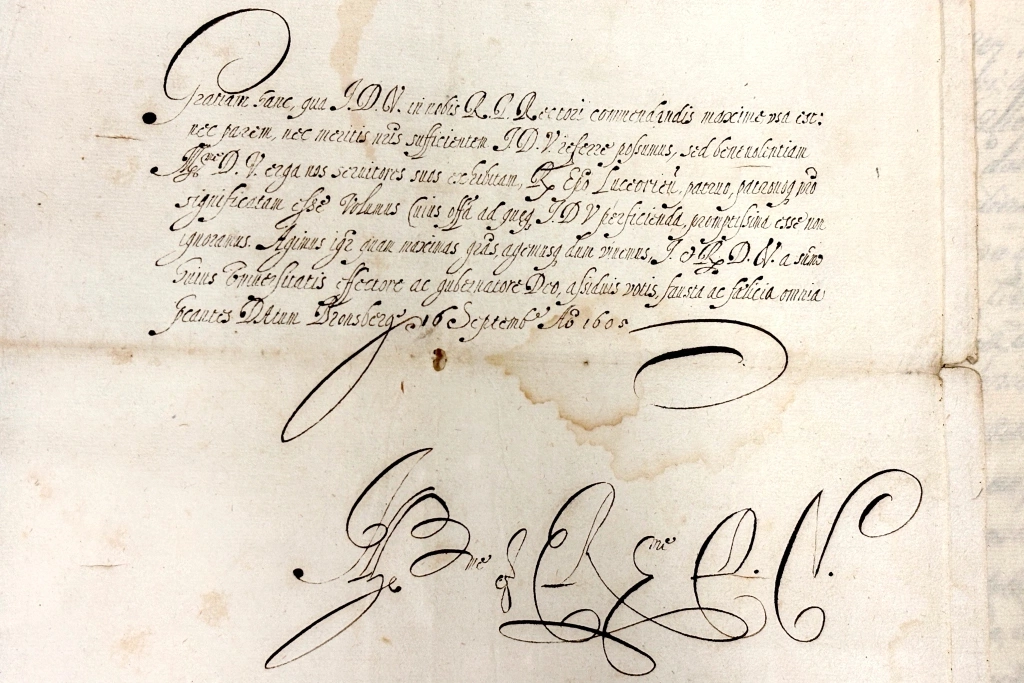 Gratiam hanc, qua I. D. V. in nobis R. P. Rectori commendandis maxime vsa est:
nec parem, nec meritis nr̃is sufficientem I D. V referre possumus, sed beneuolentiam
D. V. erga nos seruitores suos exhibitam, R Epo Luceorien. patruo, patronoq pro
significatam esse Volumus Cuius offa ad queq I D V perficienda, promptissima esse non
ignoramus. Agimus igr quam maximas gr̃as, agemusq dum viuemus, I. & R. D. V. a sum̃o
huius Vniuersitatis effectore ac gubernatore Deo, assiduis votis, fausta ac fælicia omnia
pcantes Datum Brunsberge 16 Septemb Ao 1605
Illme & Rme D. V.